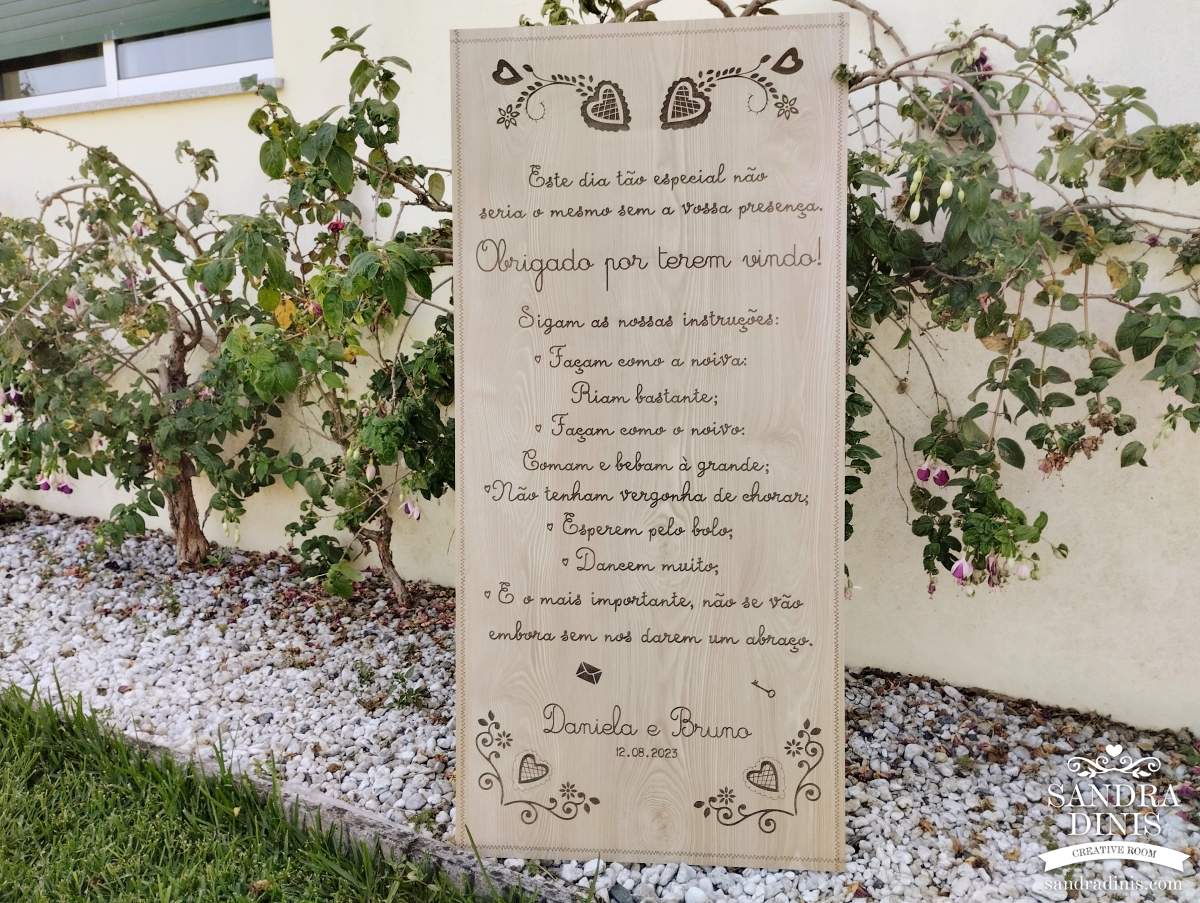 Este dia tão especial não
seria o mesmo sem a vossa presença.
Obrigado por terem vindo!
Sigam as nossas instruções:
Façam como a noiva:
Riam bastante;
Façam como o noivo:
Comam e bebam à grande;
Não tenham vergonha de chorar;
Esperem pelo bolo;
Dancem muito;
E o mais importante, não se vão
embora sem nos darem um abraço.
Daniela e Bruno
12.08.2023
SANDRA
DINIS
CREATIVE ROOM
sandradinis.com